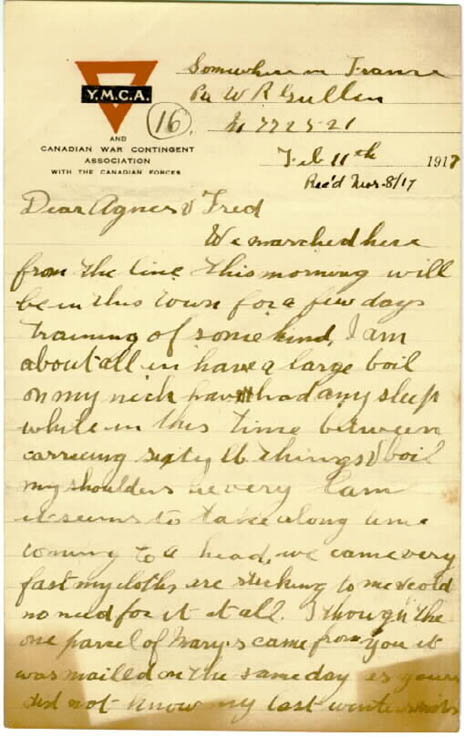 Somewhere in France
Pte W R Gullen
Y.M.C.A.
16
No 772521
AND
CANADIAN WAR CONTINGENT
ASSOCIATION
WITH THE CANADIAN FORCES
Feb 11th 1917
Rec'd Mar 8/17
Dear Agnes & Fred
We marched here
from the line this morning will
be in this town for a few days
training of some kind, I am
about all in have a large boil
on my neck havnt had any sleep
while in this time between
carrieing sixty lb things & boil
my shoulders
it seems to take along time
coming to a head, we came very
fast my cloths are sticking to me
no need for it at all. I though the
one parcel of Mary.s came from you it
was mailed on the same day as yours
did not know my last winters